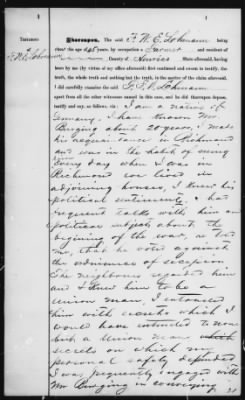 Testimony
F. W. E. Lohmann
Thereupon, The said F. W. E. Lohmann being
about the age of 48 years, by occupation a and resident of
County of Henrico State aforesaid, having
been by me (by virtue of my office aforesaid) first cautioned and sworn to testify, the
truth, the whole truth and nothing but the truth, in the matter of the claim aforesaid,
I did carefully examine the said F. W. E. Lohmann
apart from all the other witnesses named in this cause, and he did thereupon depose,
testify and say, as follows, viz: I am a native of
Germany. I have known Mr.
Burging about 20 years, I made
his acquaintance in Richmond
and was in the habit of seeing him
every day when I was in
Richmond we lived in
adjoining houses, I knew his
political sentiments, & had
frequent talks with him on
political subjects about the
beginning of the war, he told
me, that he voted against
the ordinance of secession
The neighbours regarded him
and I knew him to be a
Union man. I entrusted
him with secrets which I
would have entrusted to none
but a Union man
secrets on which my
personal safety depended
I was frequently engaged with
Mr Burging in conveying